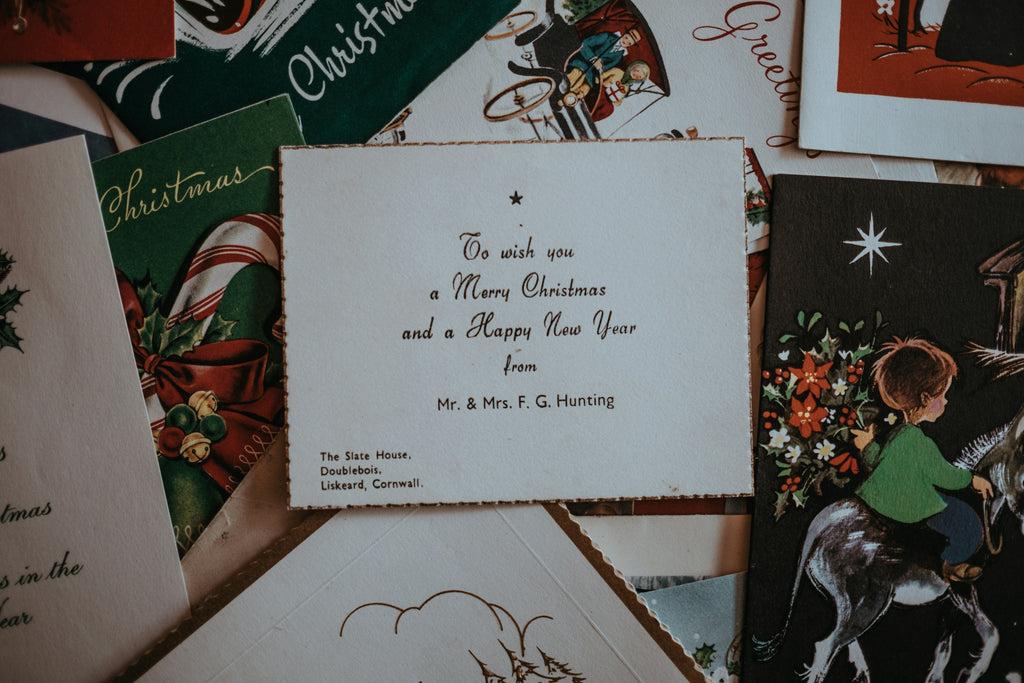 Christmas
Greetings
Christmas
To wish you
a Merry Christmas
and a Happy New Year
from
Mr. & Mrs. F. G. Hunting
The Slate House,
Doublebois,
Liskeard, Cornwall.
s
tmas
s in the
ear